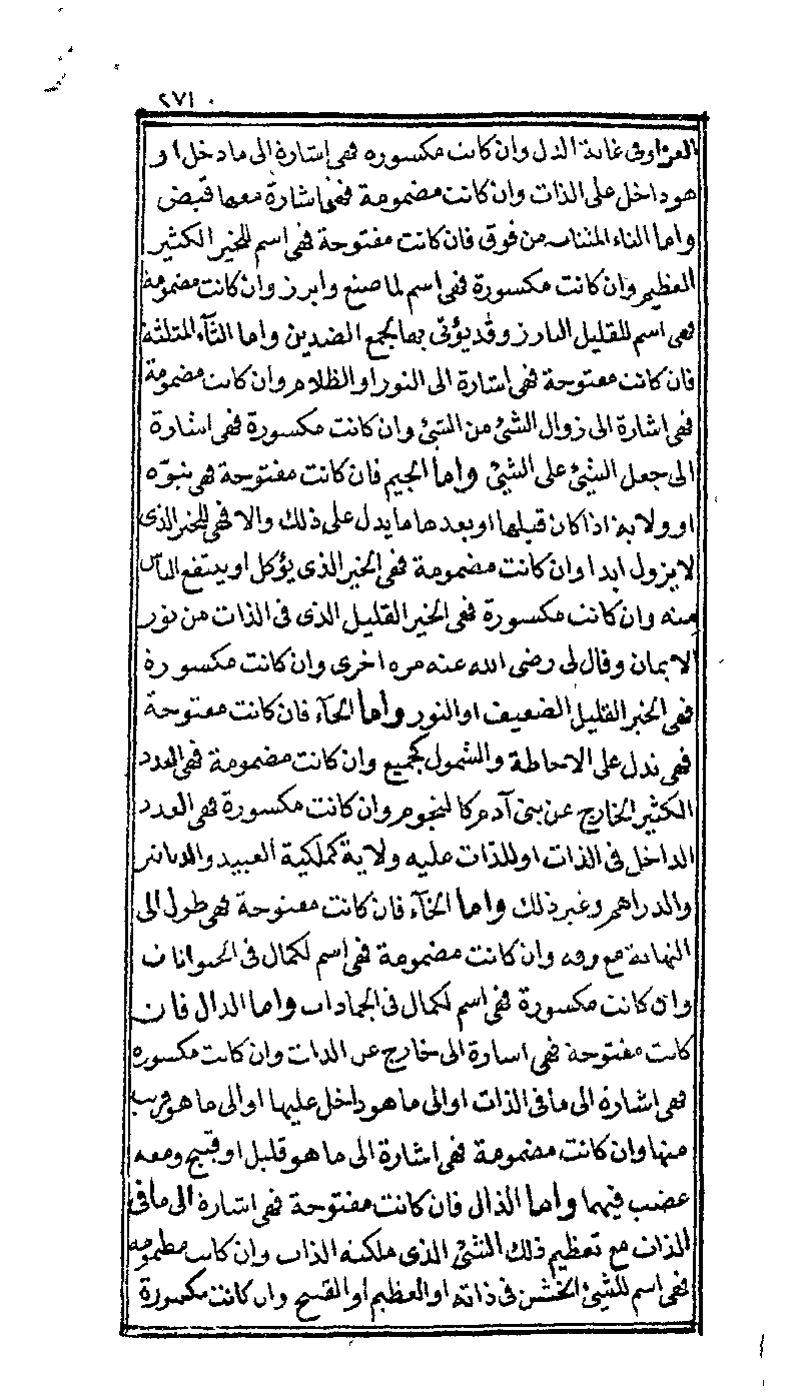 ٢٧١
العز او فى غاية الذل وان كانت مكسوره فهى إشارة الى ما دخل او
هو داخل على الذات وان كانت مضمومة فهى إشارة معها قبض
واما التاء المثناة من فوق فان كانت مفتوحة فهى اسم للخير الكثير
العظيم وان كانت مكسورة فهى اسم لما صنع وابرز وان كانت مضمومة
فهى اسم للقليل البارز وقد يؤتى بها لجمع الضدين واما الثآء المثلثة
فان كانت مفتوحة فهى اشارة الى النور او الظلام وان كانت مضمومة
فهى اشارة الى زوال الشئ من الشئ وان كانت مكسورة فهى اشارة
الى جعل الشئ على الشئ واما الجيم فان كانت مفتوحة فهى نبوّه
او ولاية اذا كان قبلها او بعدها ما يدل على ذلك والا فهى للخير الذى
لا يزول ابدا وان كانت مضمومة فهى الخير الذى يؤكل او ينتفع الناس
منه وان كانت مكسورة فهى الخير القليل الذى فى الذات من نور
الايمان وقال لى رضى الله عنه مره اخرى وان كانت مكسورة
فهى الخير القليل الضعيف او النور واما الحآء فان كانت مفتوحة
فهى تدل على الاحاطة والشمول كجميع وان كانت مضمومة فهى العدد
الكثير الخارج عن بنى آدم كالنجوم وان كانت مكسورة فهى العدد
الداخل فى الذات او للذات عليه ولاية كملكية العبيد والدنانير
والدراهم وغير ذلك واما الخآء فان كانت مفتوحة فهى طول الى
النهاية مع رقه وان كانت مضمومة فهى اسم لكمال فى الحيوانات
وان كانت مكسورة فهى اسم لكمال فى الجمادات واما الدال فان
كانت مفتوحة فهى اشارة الى خارج عن الذات وان كانت مكسوره
فهى اشارة الى ما فى الذات او الى ما هو داخل عليها او الى ما هو قريب
منها وان كانت مضمومة فهى اشارة الى ما هو قليل او قبيح ومعه
غضب فيهما واما الذال فان كانت مفتوحة فهى اشارة الى ما فى
الذات مع تعظيم ذلك الشئ الذى ملكته الذات وان كانت مضمومه
فهى اسم للشئ الخشن فى ذاته او العظيم او القبيح وان كانت مكسورة